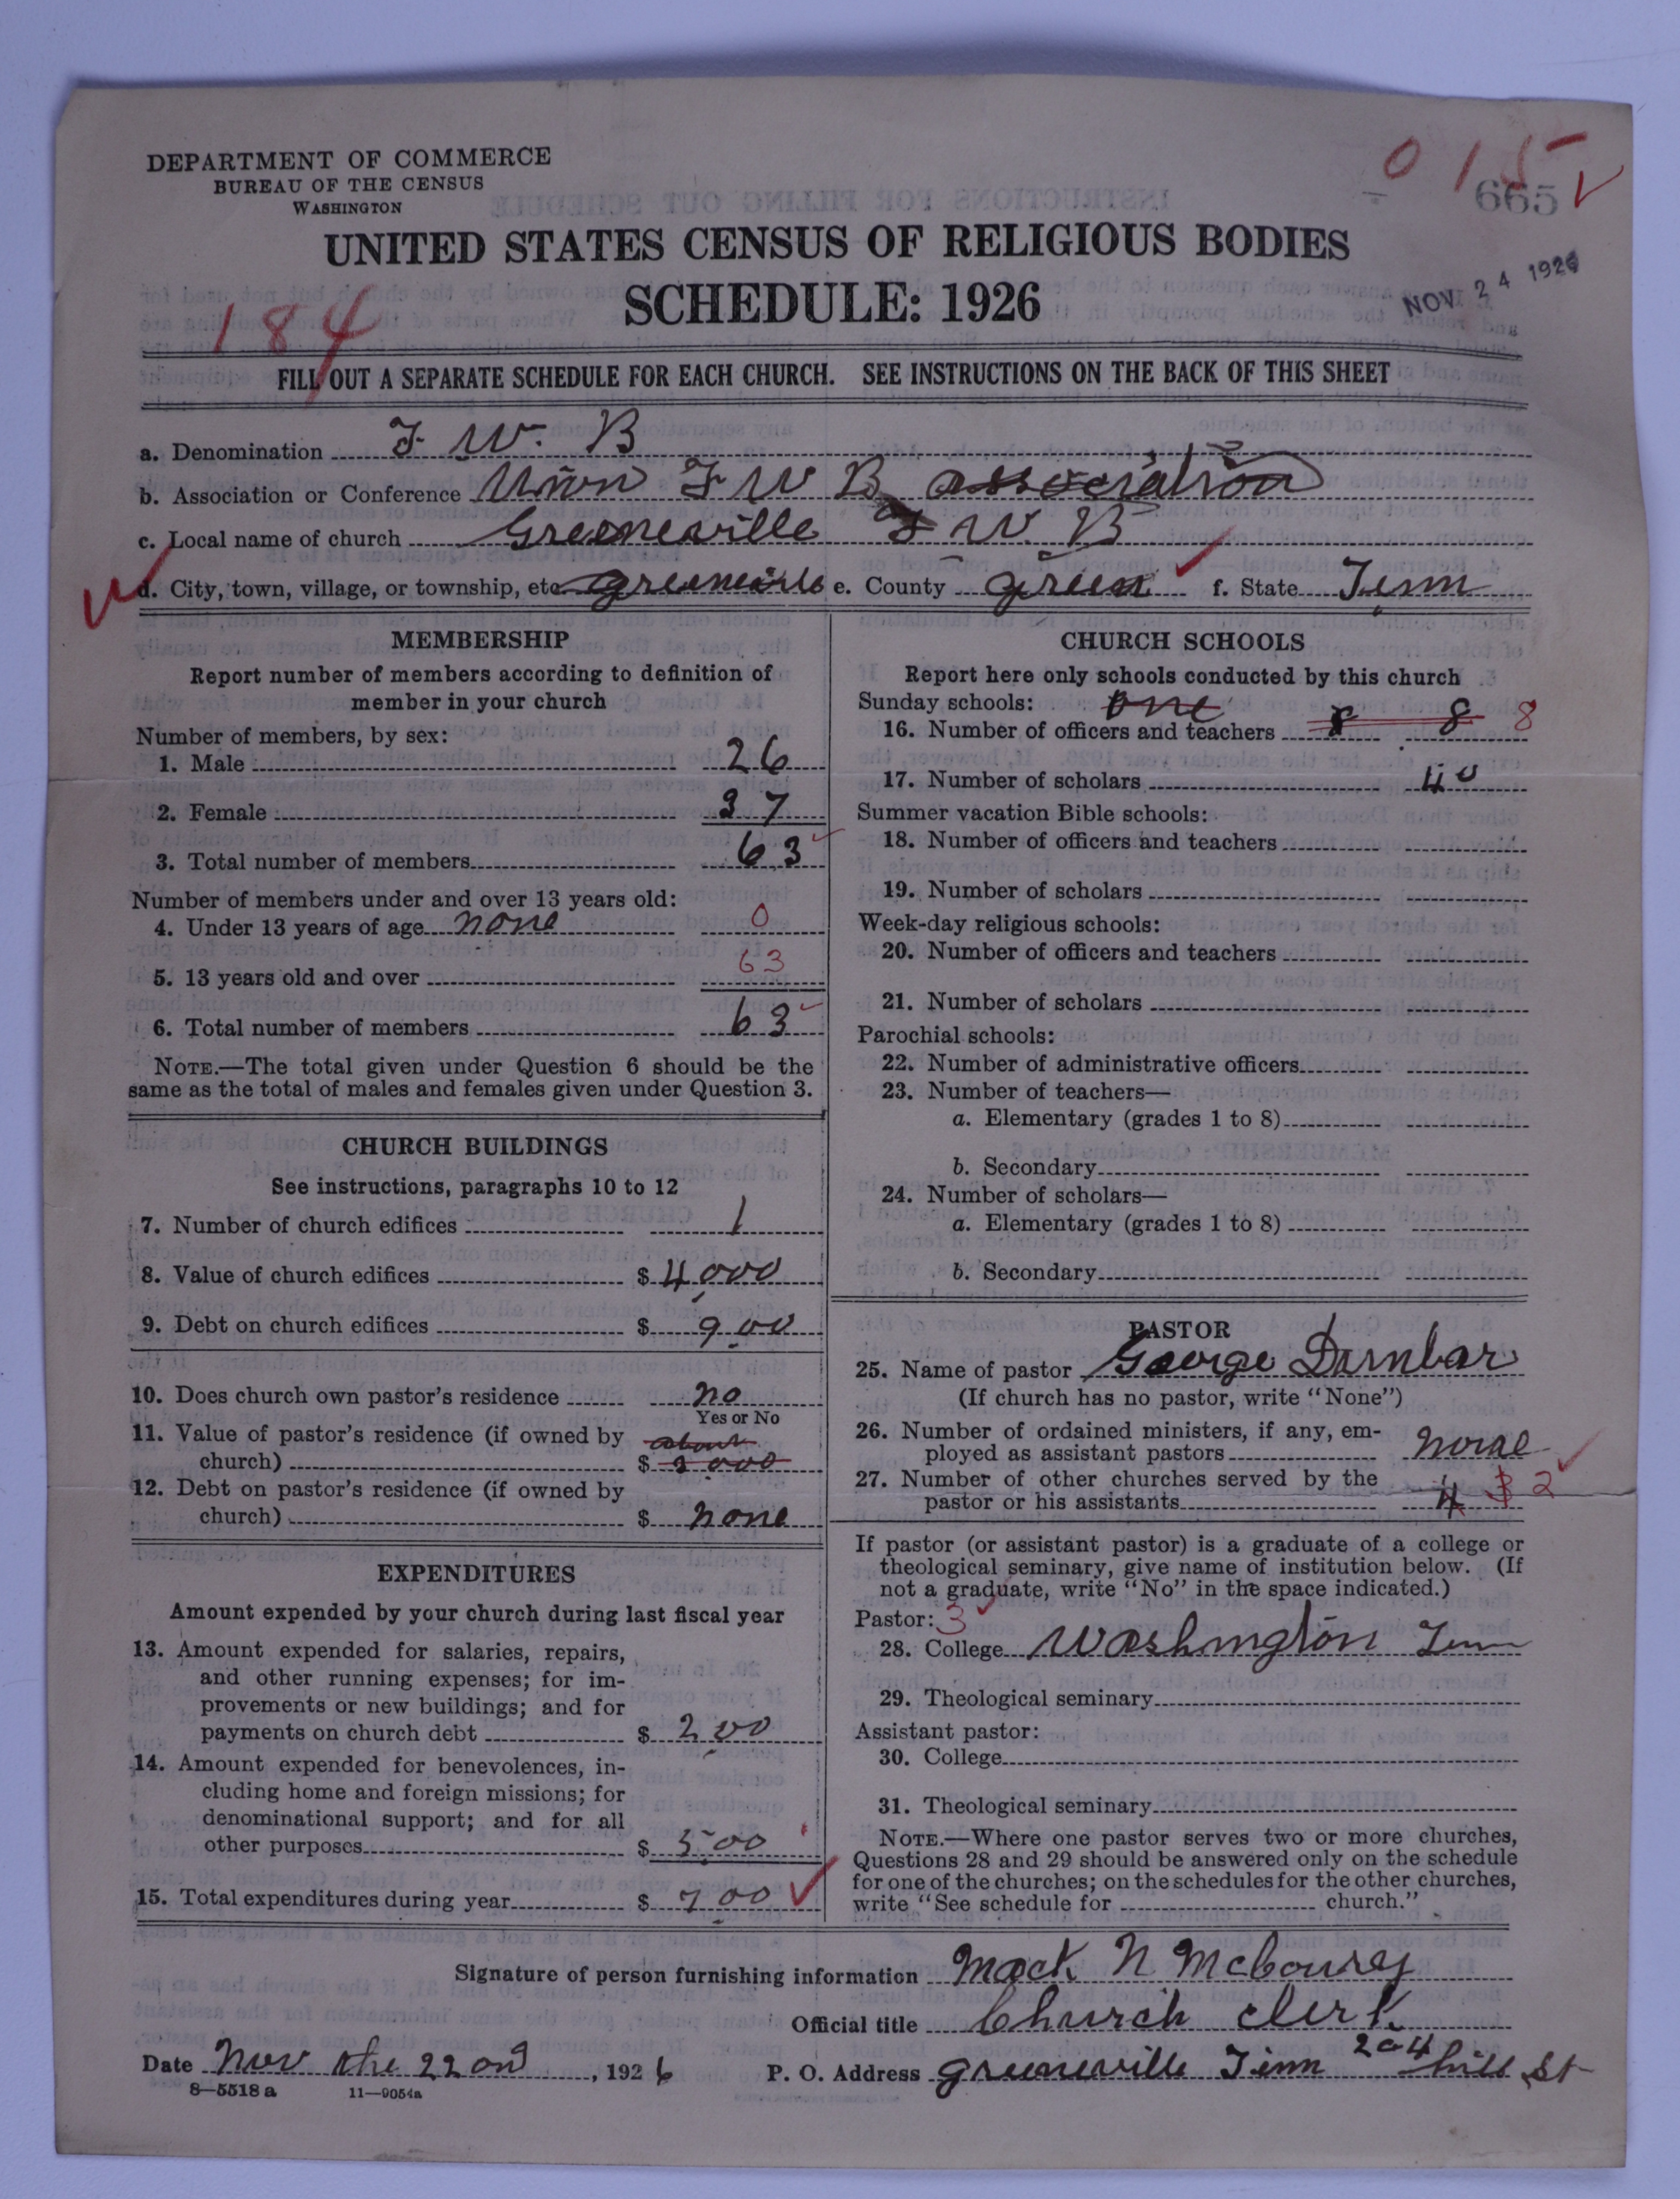 0 1 5
665
DEPARTMENT OF COMMERCE
BUREAU OF THE CENSUS
WASHINGTON
UNITED STATES CENSUS OF RELIGIOUS BODIES
SCHEDULE: 1926
NOV 24 1926
184
FILL OUT A SEPARATE SCHEDULE FOR EACH CHURCH. SEE INSTRUCTIONS ON THE BACK OF THIS SHEET
a. Denomination F W. B
b. Association or Conference Union F W B association
c. Local name of church Greeneville F W. B
d. City, town, village, or township, etc. greeneville e. County green f. State Tenn
MEMBERSHIP
Report number of members according to definition of
member in your church
Number of members, by sex:
1. Male 26
2. Female 37
3. Total number of members 63
Number of members under and over 13 years old:
4. Under 13 years of age none 0
5. 13 years old and over 63
6. Total number of members 63
NOTE.—The total given under Question 6 should be the
same as the total of males and females given under Question 3.
CHURCH BUILDINGS
See instructions, paragraphs 10 to 12
7. Number of church edifices 1
8. Value of church edifices $ 4,000
9. Debt on church edifices $ 9.00
10. Does church own pastor's residence no
Yes or No
11. Value of pastor's residence (if owned by about
church) $ 3,000
12. Debt on pastor's residence (if owned by
church) $ none
EXPENDITURES
Amount expended by your church during last fiscal year
13. Amount expended for salaries, repairs,
and other running expenses; for im-
provements or new buildings; and for
payments on church debt $ 2,00
14. Amount expended for benevolences, in-
cluding home and foreign missions; for
denominational support; and for all
other purposes $ 5.00
15. Total expenditures during year $ 7.00
CHURCH SCHOOLS
Report here only schools conducted by this church
Sunday schools: one
16. Number of officers and teachers 8 8 8
17. Number of scholars 40
Summer vacation Bible schools:
18. Number of officers and teachers
19. Number of scholars
Week-day religious schools:
20. Number of officers and teachers
21. Number of scholars
Parochial schools:
22. Number of administrative officers
23. Number of teachers—
a. Elementary (grades 1 to 8)
b. Secondary
24. Number of scholars—
a. Elementary (grades 1 to 8)
b. Secondary
PASTOR
25. Name of pastor George
(If church has no pastor, write "None")
26. Number of ordained ministers, if any, em-
ployed as assistant pastors
27. Number of other churches served by the
pastor or his assistants 4 2
If pastor (or assistant pastor) is a graduate of a college or
theological seminary, give name of institution below. (If
not a graduate, write "No" in the space indicated.)
Pastor: 3
28. College Washington Tenn
29. Theological seminary
Assistant pastor:
30. College
31. Theological seminary
NOTE.—Where one pastor serves two or more churches,
Questions 28 and 29 should be answered only on the schedule
for one of the churches; on the schedules for the other churches,
write "See schedule for church."
Signature of person furnishing information Mack N
Official title Church clerk
Date Nov the 22 ond, 1926 P. O. Address greeneville Tenn 204 hill St
8—5518a 11—9054a